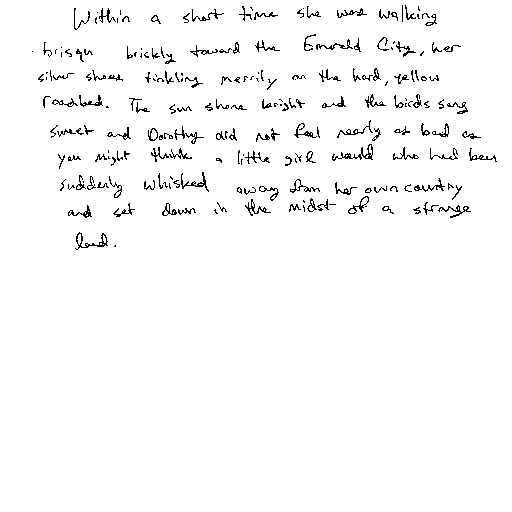 Within a short time she was walking
brisqu briskly toward the Emerald City, her
silver shoes tinkling merrily on the hard, yellow
roadbed. The sun shone bright and the birds sang
sweet and Dorothy did not feel nearly as bad as
you might think a little girl would who had been
suddenly whisked away from her own country
and set down in the midst of a strange
land.